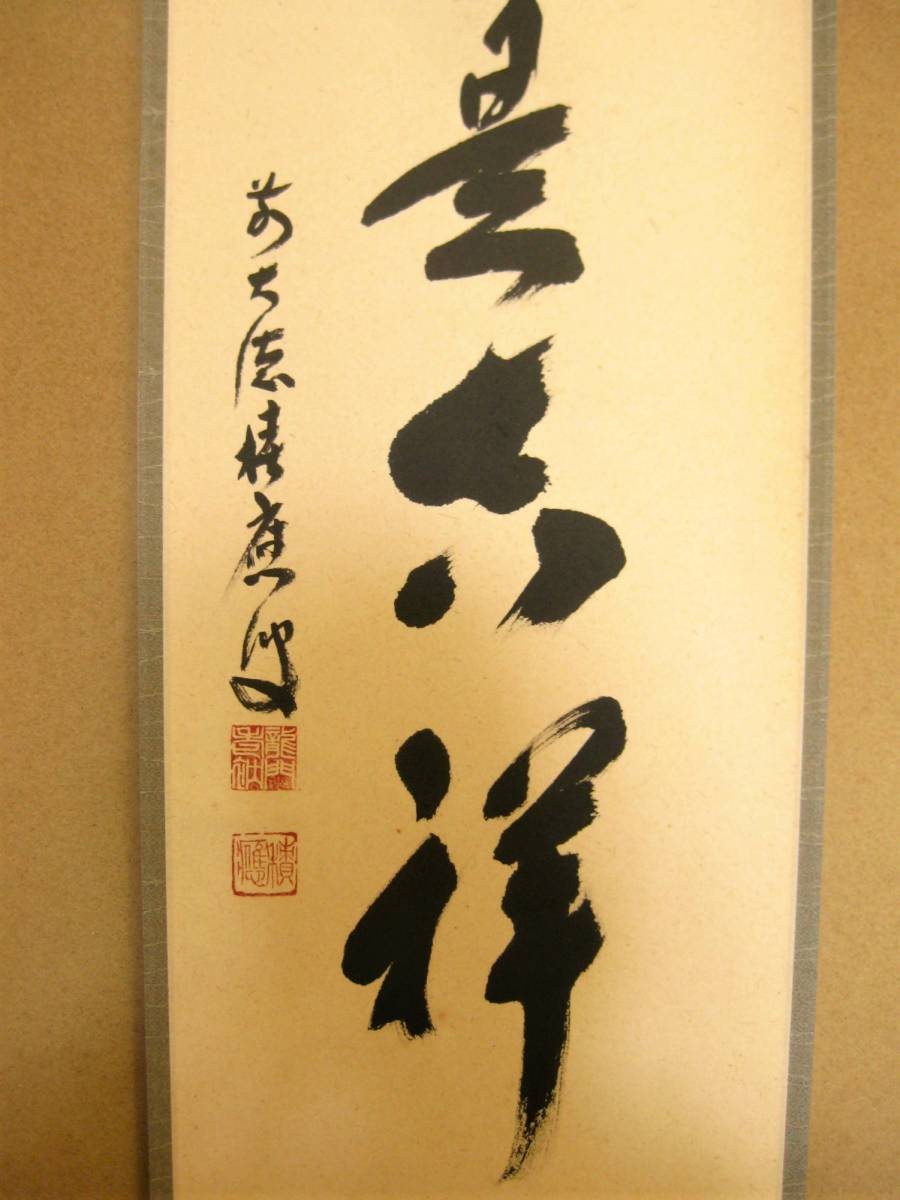 是吉祥
前大徳積應叟
積應